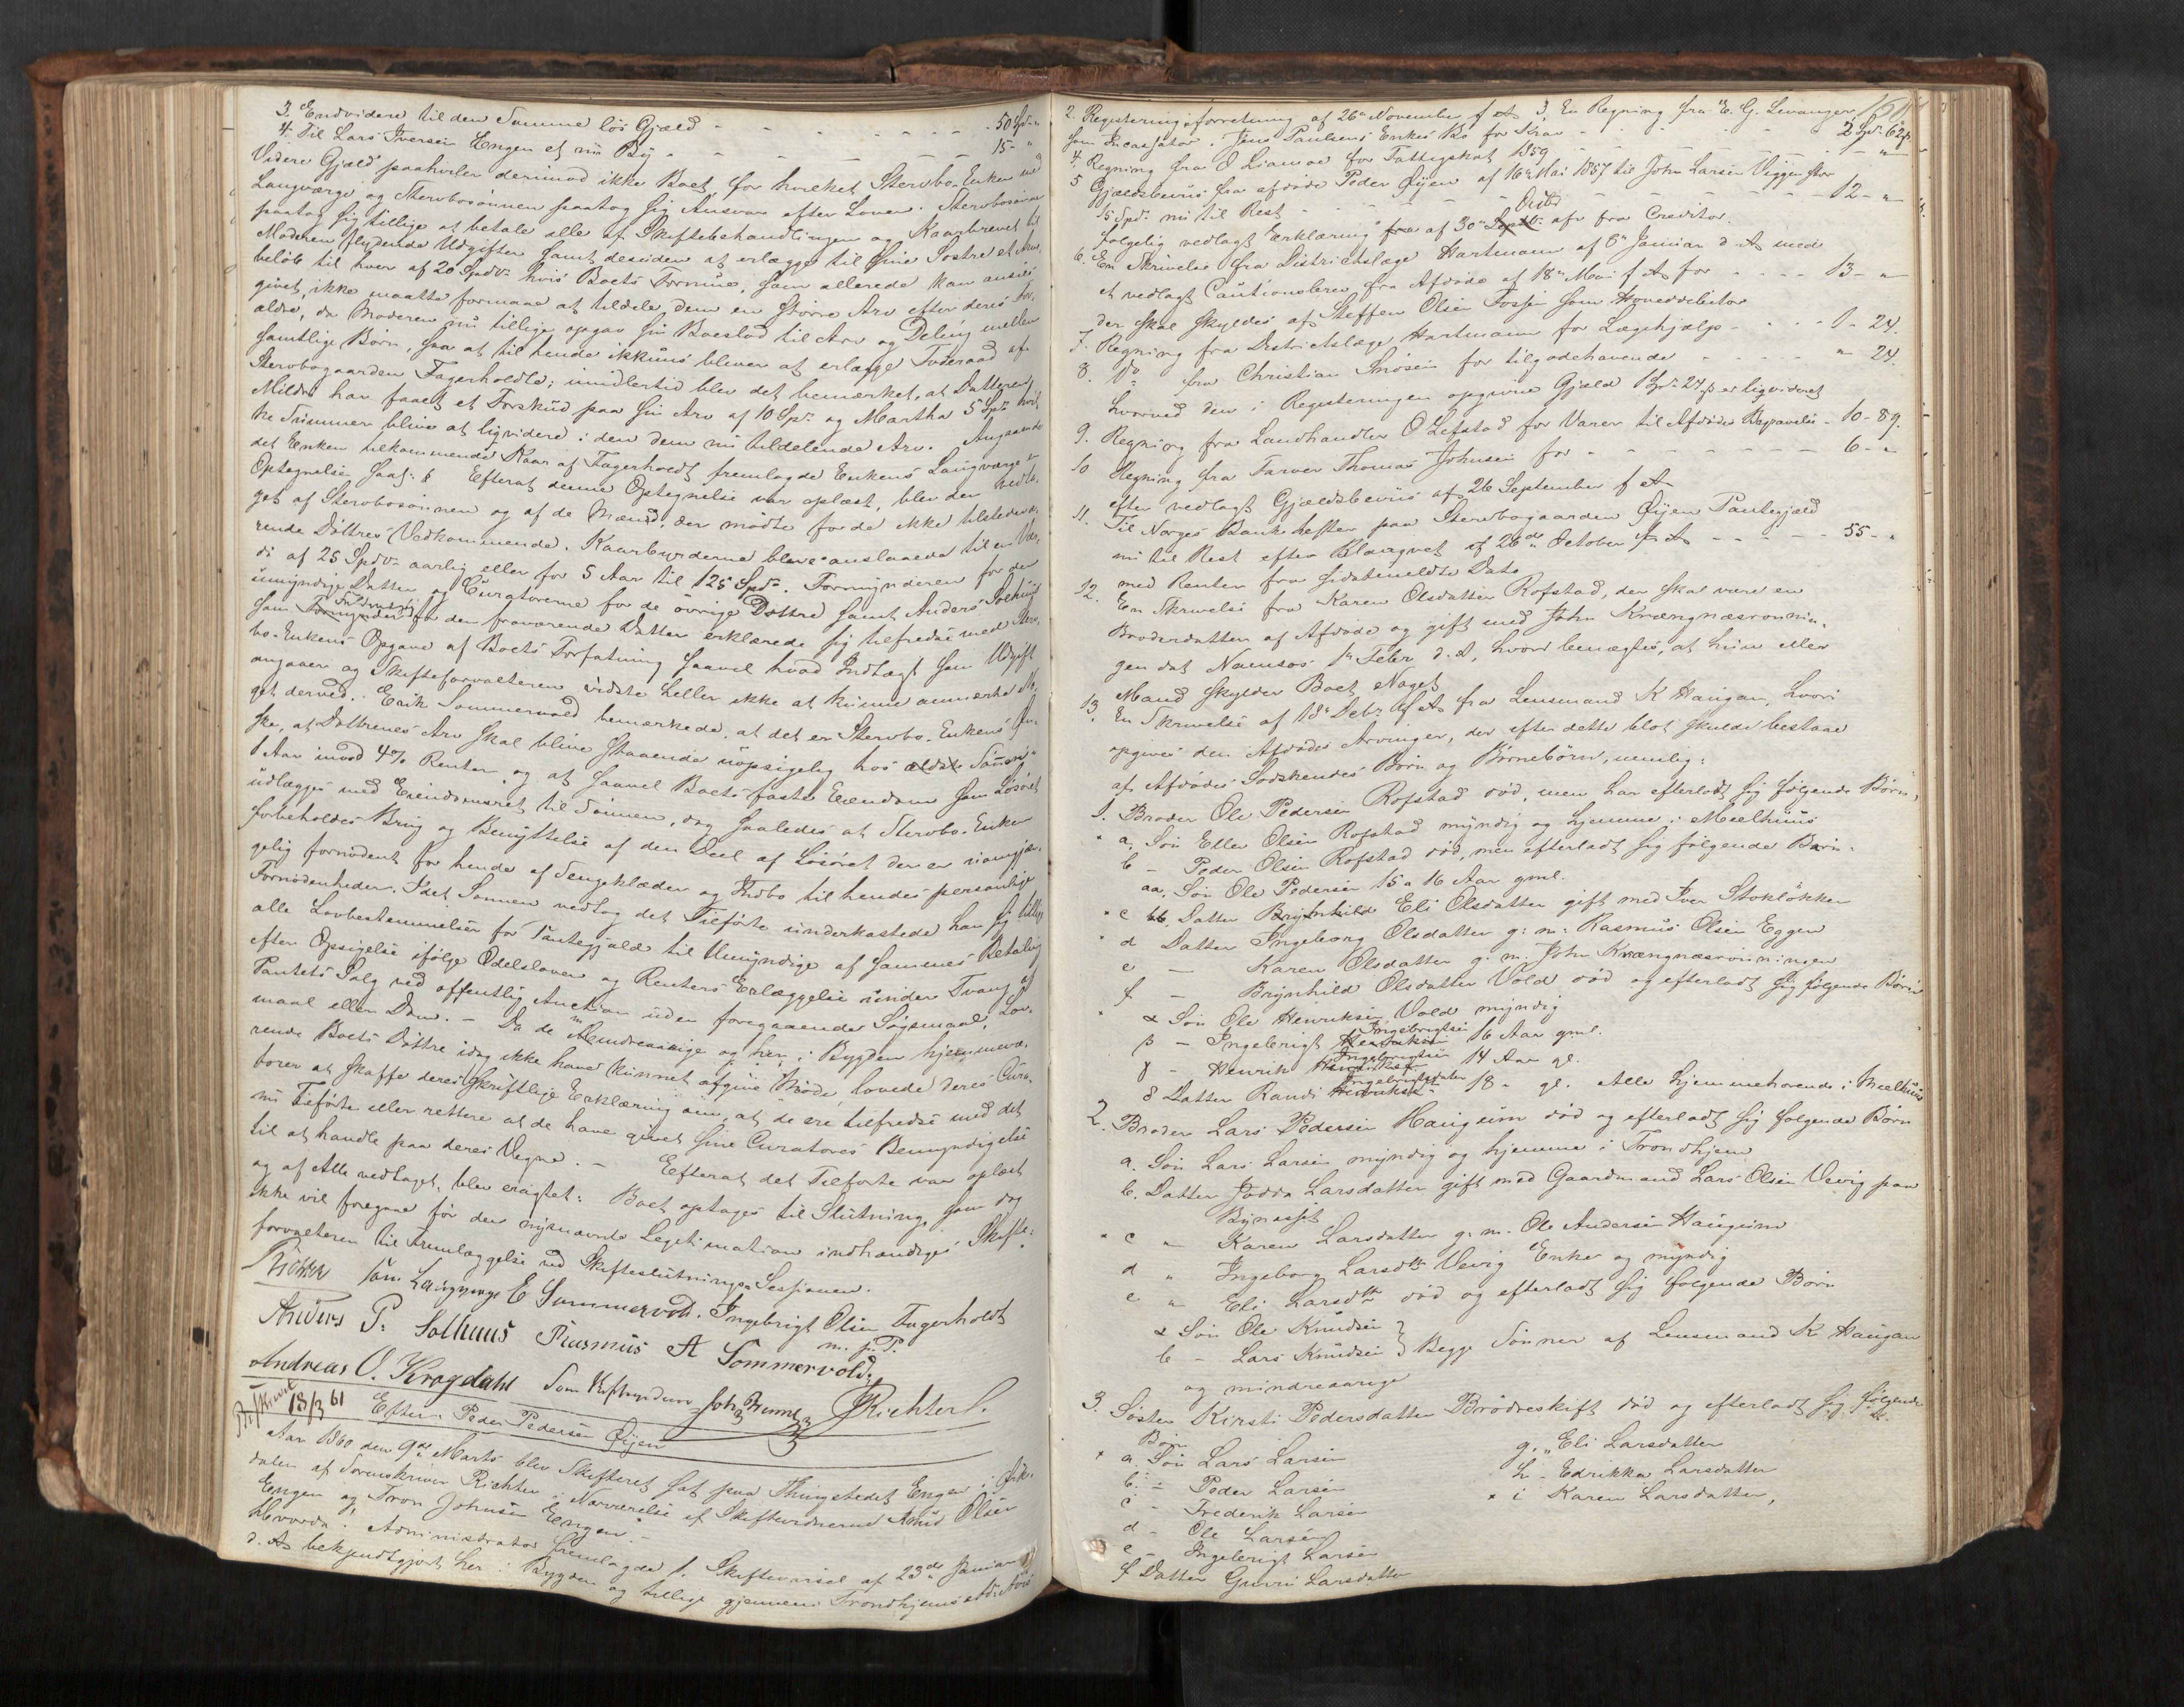 3. Endvidere til den Samme løs Gjæld - - - - - - - - - 50 Spd "
4. Til Lars Iversen Engen et nü Byg - - - - - - - - 15 - "
Videre Gjæld paahviler derimod ikke Boet, for hvilket Stervbo-Enken med
Laugværge og Stervbosönnen paatog sig Ansvar efter Loven. Stervbosönnen
paatog sig tillige at betale alle af Skiftebehandlingen og Kaarbrevet til
Moderen flydende Udgifter samt desuden at erlægge til sine Sostre et Arve-
beløb til hver af 20 Spdr hvis Boets Formue, som allerede kan ansees
givet, ikke maatte formaae at tildele dem en større Arv efter deres For-
ældre, da Moderen nu tillige opgav sin Boeslod til Arv og Deling mellem
samtlige Börn, saa at til hende ikkuns bliver at erlægge Föderaad af
Stervbogaarden Fagerholdt; imidlertid blev det bemærket, at Datteren
Mildri har faaet et Forskud paa sin Arv af 10 Spd og Martha 5 Spd hvil-
ke Summer blive at liqvidere i den dem nu tildelende Arv. Angaaende
det Enken tilkommende Kaar af Fagerholdt fremlagde Enkens Laugværge en
Optegnelse saal: § Efterat denne Optegnelse var oplæst, blev den vedta-
get af Stervbosönnen og af de Mænd, der mødte for de ikke tilstedevæ-
rende Döttres Vedkommende. Kaarbyrderne bleve anslaaede til en Vær-
di af 25 Spdr aarlig eller for 5 Aar til 125 Spd. Formynderen for den
umyndige Datter og Curatorerne for de øvrige Döttre samt Anders Solhuus
som Formynder for den fraværende Datter erklærede sig tilfredse med Sterv-
bo-Enkens Opgave af Boets Forfatning saavel hvad Indtægt som Udgift
angaaer og Skifteforvalteren vidste heller ikke at kunne anmærke No-
get derved. Erik Sommervold bemærkede, at det er Stervbo-Enkens Øn-
ske, at Döttrenes Arv skal blive staaende uopsigelig hos ældste Sönnen
1 Aar imod 4% Renter og at saavel Boets faste Eiendom som Løsøret
udlægges med Eiendomsret til Sönnen, dog saaledes at Stervbo-Enken
forbeholdes Brug og Benyttelse af den Deel af Løsøret der er uomgjæn-
gelig fornødent for hende af Sengeklæder og Indbo til hendes personlige
Fornödenheder. Idet Sønnen vedtog det Tilførte underkastede han sig tillige
alle Lovbestemmelser for Pantegjæld til Umyndige af sammes Betaling
efter Opsigelse ifølge Odelsloven og Renters Erlæggelse under Tvang af
Pantets Salg ved offentlig Auction uden foregaaende Søgsmaal, Lov-
maal eller Dom. - Da de Mindreaarige og her i Bygden hjemmevæ-
rende Boets Döttre idag ikke have kunnet afgive Møde, lovede deres Cura-
torer at skaffe deres skriftlige Erklæring om, at de ere tilfredse med det
nu Tilførte eller rettere at de have givet sine Curatores Bemyndigelse
til at handle paa deres Vegne. - Efterat det Tilførte var oplæst
og af Alle vedtaget, blev eragtet: Boet optages til Slutning, som dog
ikke vil foregaae før den nysnævnte Legitimation indhændiges Skifte-
forvalteren til Fremlæggelse ved Skifteslutnings Sessionen.
Richter som Laugværge E Sommervold. Ingebrigt Olsen Fagerholdt
m. p. P.
Anders P. Solhuus Rasmus A Sommervold
Andreas O. Krogdahl Som Skiftevidner Richter
18/3 61 Efter Peder Pedersen Øyen
Aar 1860 den 9de Marts blev Skifteret sat paa Thingstedet Engen i Ørk-
dalen af Sorenskriver Richter i Nærværelse af Skiftevidnerne Arnt Olsen
Engen og Tron Johnsen Engen -
Hvorda: Administrator fremlagde 1. Skiftevarsel af 23de Januar
d. A. bekjendtgjort her i Bygden og tillige gjennem Trondhjems Adr: Avis
2. Registeringsforretning af 26e November f. A. 3, En Regning fra E. G. Levanger
som Incassator. Jens Paulsens Enkes Bo for Kron - - - - 2 Spd 62 s
4. Regning fra O Liamoe for Fattigskat 1859 - - - - - "
5 Gjældsbeviis fra afdøde Peder Øyen af 16e Mai 1857 til John Larsen Viggen stor
15 Spd. nu til Rest - - - - - - - - - - 12 - "
Octbr
følgelig vedlagt Erklæring fra af 30e Septbr afv fra Creditor.
6. En Skrivelse fra Distriktslæge Hartmann af 6e Januar d A med
et vedlagt Cautionsbrev fra Afdøde af 18e Mai f A for - - - - 13 - "
der skal skyldes af Steffen Olsen Fossen som Hoveddebitor
7. Regning fra Distriktslæge Hartmann for Lægehjælp - - - - 1 - 24.
8. Do fra Christian Smösen for tilgodehavende - - - - " 24.
hvorved den i Registeringen opgivne Gjæld 1 Spd 24 s er liqvideret
9. Regning fra Landhandler O Lefstad for Varer til Afdødes Begravelse - 10 - 89.
10 Regning fra Farver Thomas Johnsen for - - - - - - 6 - "
efter vedlagt Gjældsbeviis af 26 September f A
11. Til Norges Bank hefter paa Stervbogaarden Øyen Pantegjæld
nu til Rest efter Blanqvet af 26de October f. A - - - - - 55 - "
med Renter fra sidstmeldte Dato
12. En Skrivelse fra Karen Olsdatter Rofstad, der skal være en
Broderdatter af Afdøde og gift med John Krængnæsrønnin-
gen dat Namsos 1e Febr d. A, hvori benægtes, at hun eller
Mand skylder Boet Noget
13. En Skrivelse af 18e Debr f A fra Lensmand K Haugan, hvori
opgives den Afdødes Arvinger, der efter dette blot skulde bestaae
af Afdødes Sødskendes Börn og Börnebörn, nemlig:
1. Broder Ole Pedersen Rofstad död, men har efterladt sig følgende Börn,
" a. Sön Eller Olsen Rofstad myndig og hjemme i Meelhuus
b - Peder Olsen Rofstad död, men efterladt sig følgende Barn:
aa. Sön Ole Pedersen 15 a 16 Aar gml.
" c bb. Datter Brynhild Eli Olsdatter gift med Iver Stokløkken
" d Datter Ingeborg Olsdatter g: m: Rasmus Olsen Eggen
e - Karen Olsdatter g. m. John Krængnæsrønningen
f - Brynhild Olsdatter Vold död og efterladt sig følgende Börn
" α Sön Ole Henriksen Vold myndig
Ingebrigtsen
β - Ingebrigt Henriksen 16 Aar gml.
Ingebrigtsen
γ - Henrik Henriksen 14 Aar gl.
Ingebrigtsdatter
δ Datter Randi Henriks 18 - gl. Alle hjemmehørende i Meelhuus
2. Broder Lars Pedersen Haugum död og efterladt sig følgende Börn
a. Sön Lars Larsen myndig og hjemme i Trondhjem
b. Datter Jødda Larsdatter gift med Gaardmand Lars Olsen Vevig paa
Bynæsset
" c " Karen Larsdatter g. m. Ole Andersen Haugum
d " Ingeborg Larsdtr Vevig Enke og myndig
e " Eli Larsdtr död og efterladt sig følgende Börn
α Sön Ole Knudsen
b - Lars Knudsen } Begge Sönner af Lensmand K Haugan
og mindreaarige
3. Søster Kirsti Pedersdatter Brödreskift död og efterladt sig følgende
Börn
× a. Sön Lars Larsen
b. - Peder Larsen
c - Frederik Larsen
d - Ole Larsen
e - Ingebrigt Larsen
f Datter Gurri Larsdatter
g. " Eli Larsdatter
h - Edrikka Larsdatter
× i Karen Larsdatter,